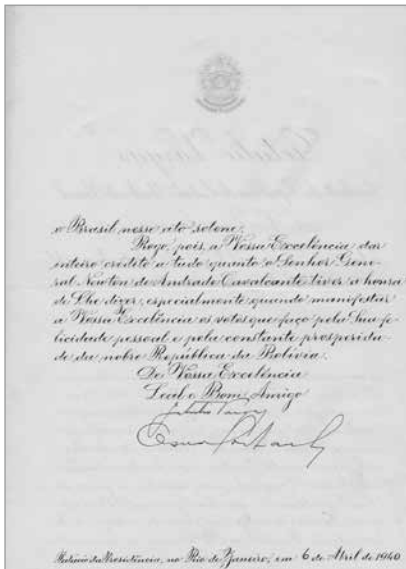 o Brasil nesse ato solene.
Rogo, pois, a Vossa Excelência dar
inteiro crédito a tudo quanto o Senhor Gene-
ral Newton de Andrade Cavalcante tiver a honra
de Lhe dizer, especialmente quando manifestar
a Vossa Excelência os votos que faço pela Sua fe-
licidade pessoal e pela constante prosperida-
de da nobre República da Bolívia.
De Vossa Excelência
Leal e Bom Amigo
Getulio Vargas
Palácio da Presidência, no Rio de Janeiro, em 6 de Abril de 1940